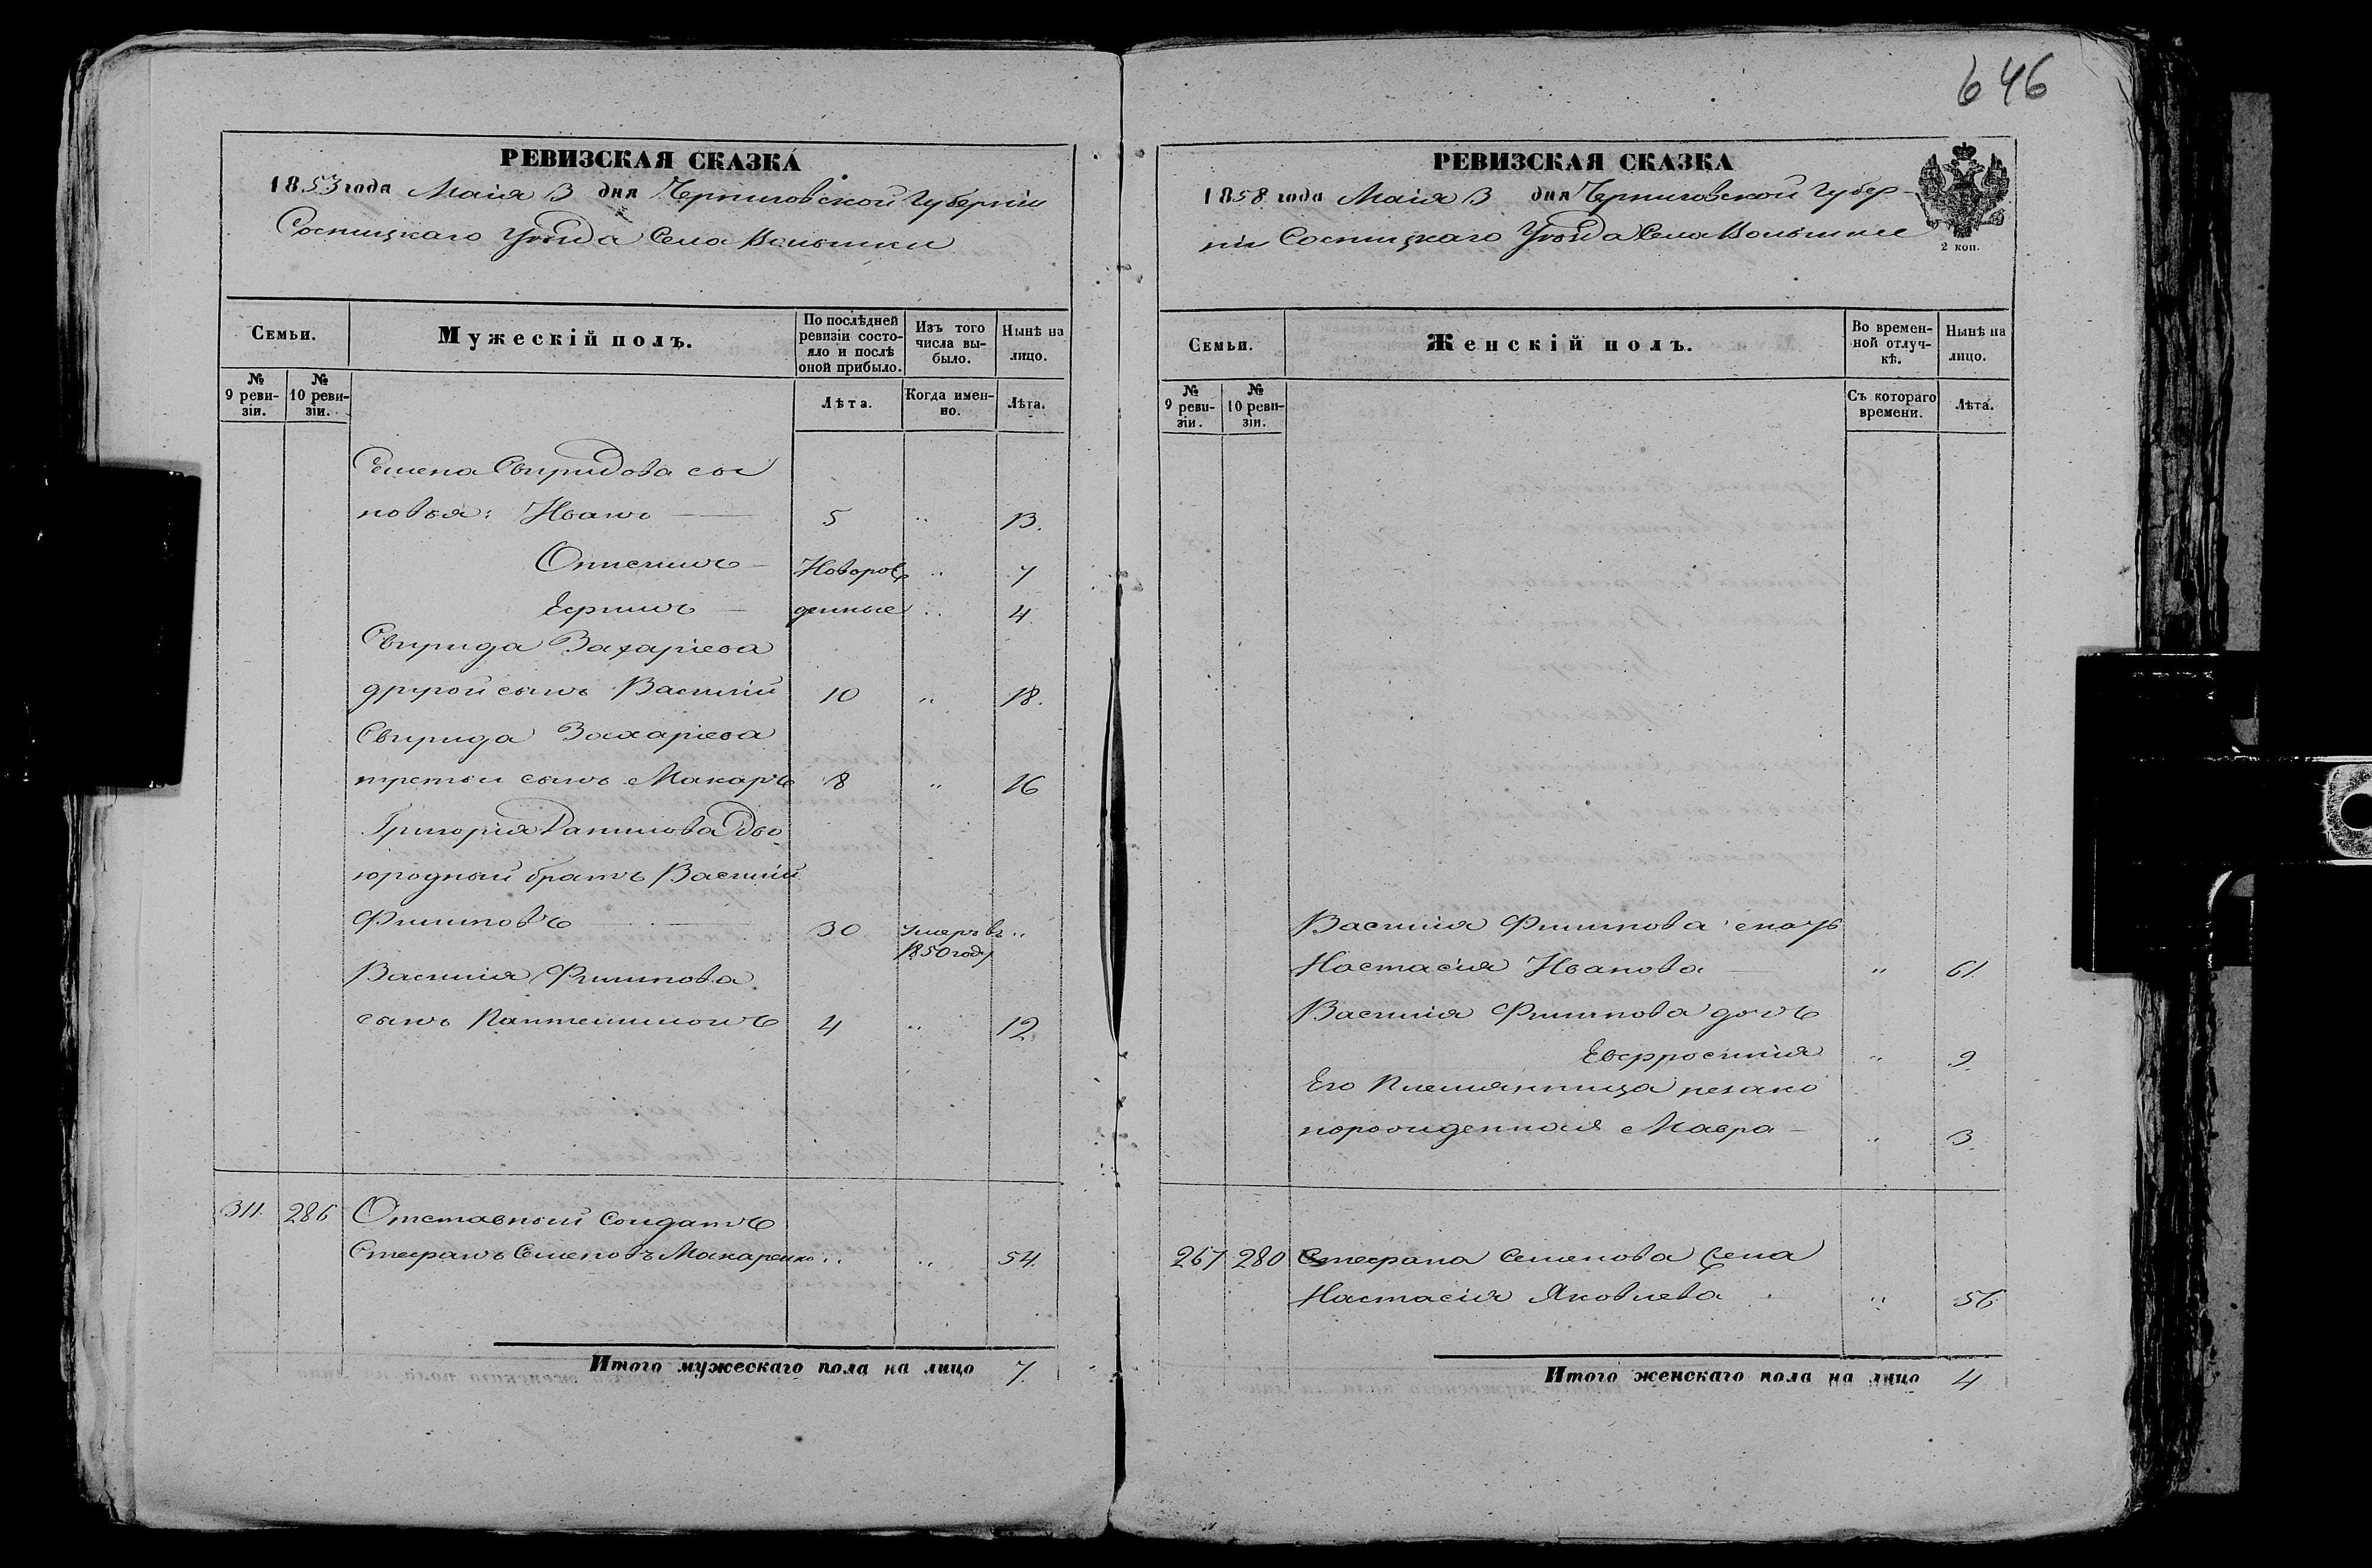 646
РЕВИЗСКАЯ СКАЗКА
1853 года Маія 3 дня Черниговской Губерніи
Сосницкаго Уѣзда Села
Семьи.
Мужескій полъ.
По послѣдней ревизіи состояло и послѣ оной прибыло.
Изъ того числа выбыло.
Нынѣ на лицо.
№ 9 ревизіи.
№ 10 ревизіи.
Лѣта.
Когда именно.
Лѣта.
Семена Свиридова сы
новья: Иванъ 5 " 13.
Новорож " 7
Ефимъ денные " 4
Свирида Захаріева
другой сынъ Василій 10 " 18.
Свирида Захаріева
третьи сынъ Макаръ 8 " 16
Григорія Данилова Дво
юродный братъ Василій
Филиповъ 30 умеръ въ 1850 году "
Василія Филипова
сынъ Пантелимонъ 4 " 12
311. 286 Отставный Солдатъ
Стефанъ Семеновъ Макаренко " " 54.
Итого мужескаго пола на лицо 7.
РЕВИЗСКАЯ СКАЗКА
1858 года Маія 3 дня Черниговской Губер-
ніи Сосницкаго Уѣзда Села
2 коп.
Семьи.
Женскій полъ.
Во временной отлучкѣ.
Нынѣ на лицо.
№ 9 ревизіи.
№ 10 ревизіи.
Съ котораго времени.
Лѣта.
Василія Филипова
Настасія Иванова " 61
Василія Филипова дочь
Евфросинія " 9.
Его Племянница незако
норожденная Мавра " 3.
267 280 Стефана Семенова Жена
Настасія Яковлева " 56
Итого женскаго пола на лицо 4